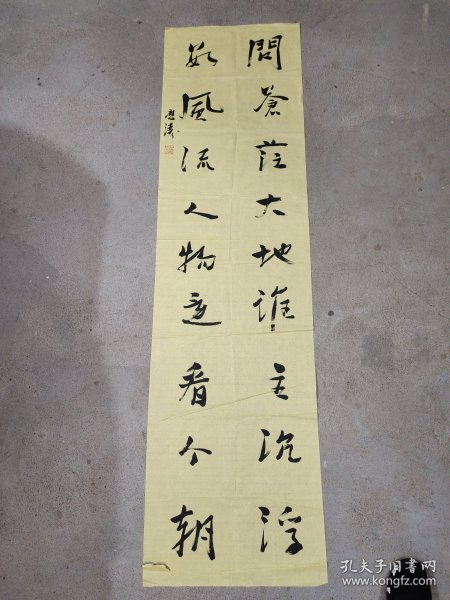 問蒼茫大地誰主沉浮
數風流人物還看今朝
孔夫子旧书网
www.kongfz.com